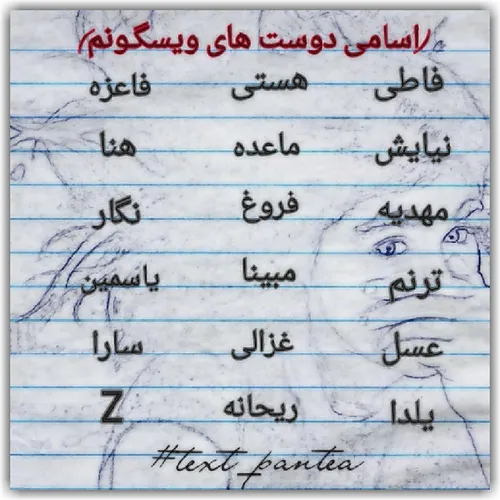 (اسامی دوست های ویسگونم)
فاطی هستی فاعزه
نیایش ماعده هنا
مهدیه فروغ نگار
ترنم مبینا یاسمین
عسل غزالی سارا
یلدا ریحانه Z
#text_pantea